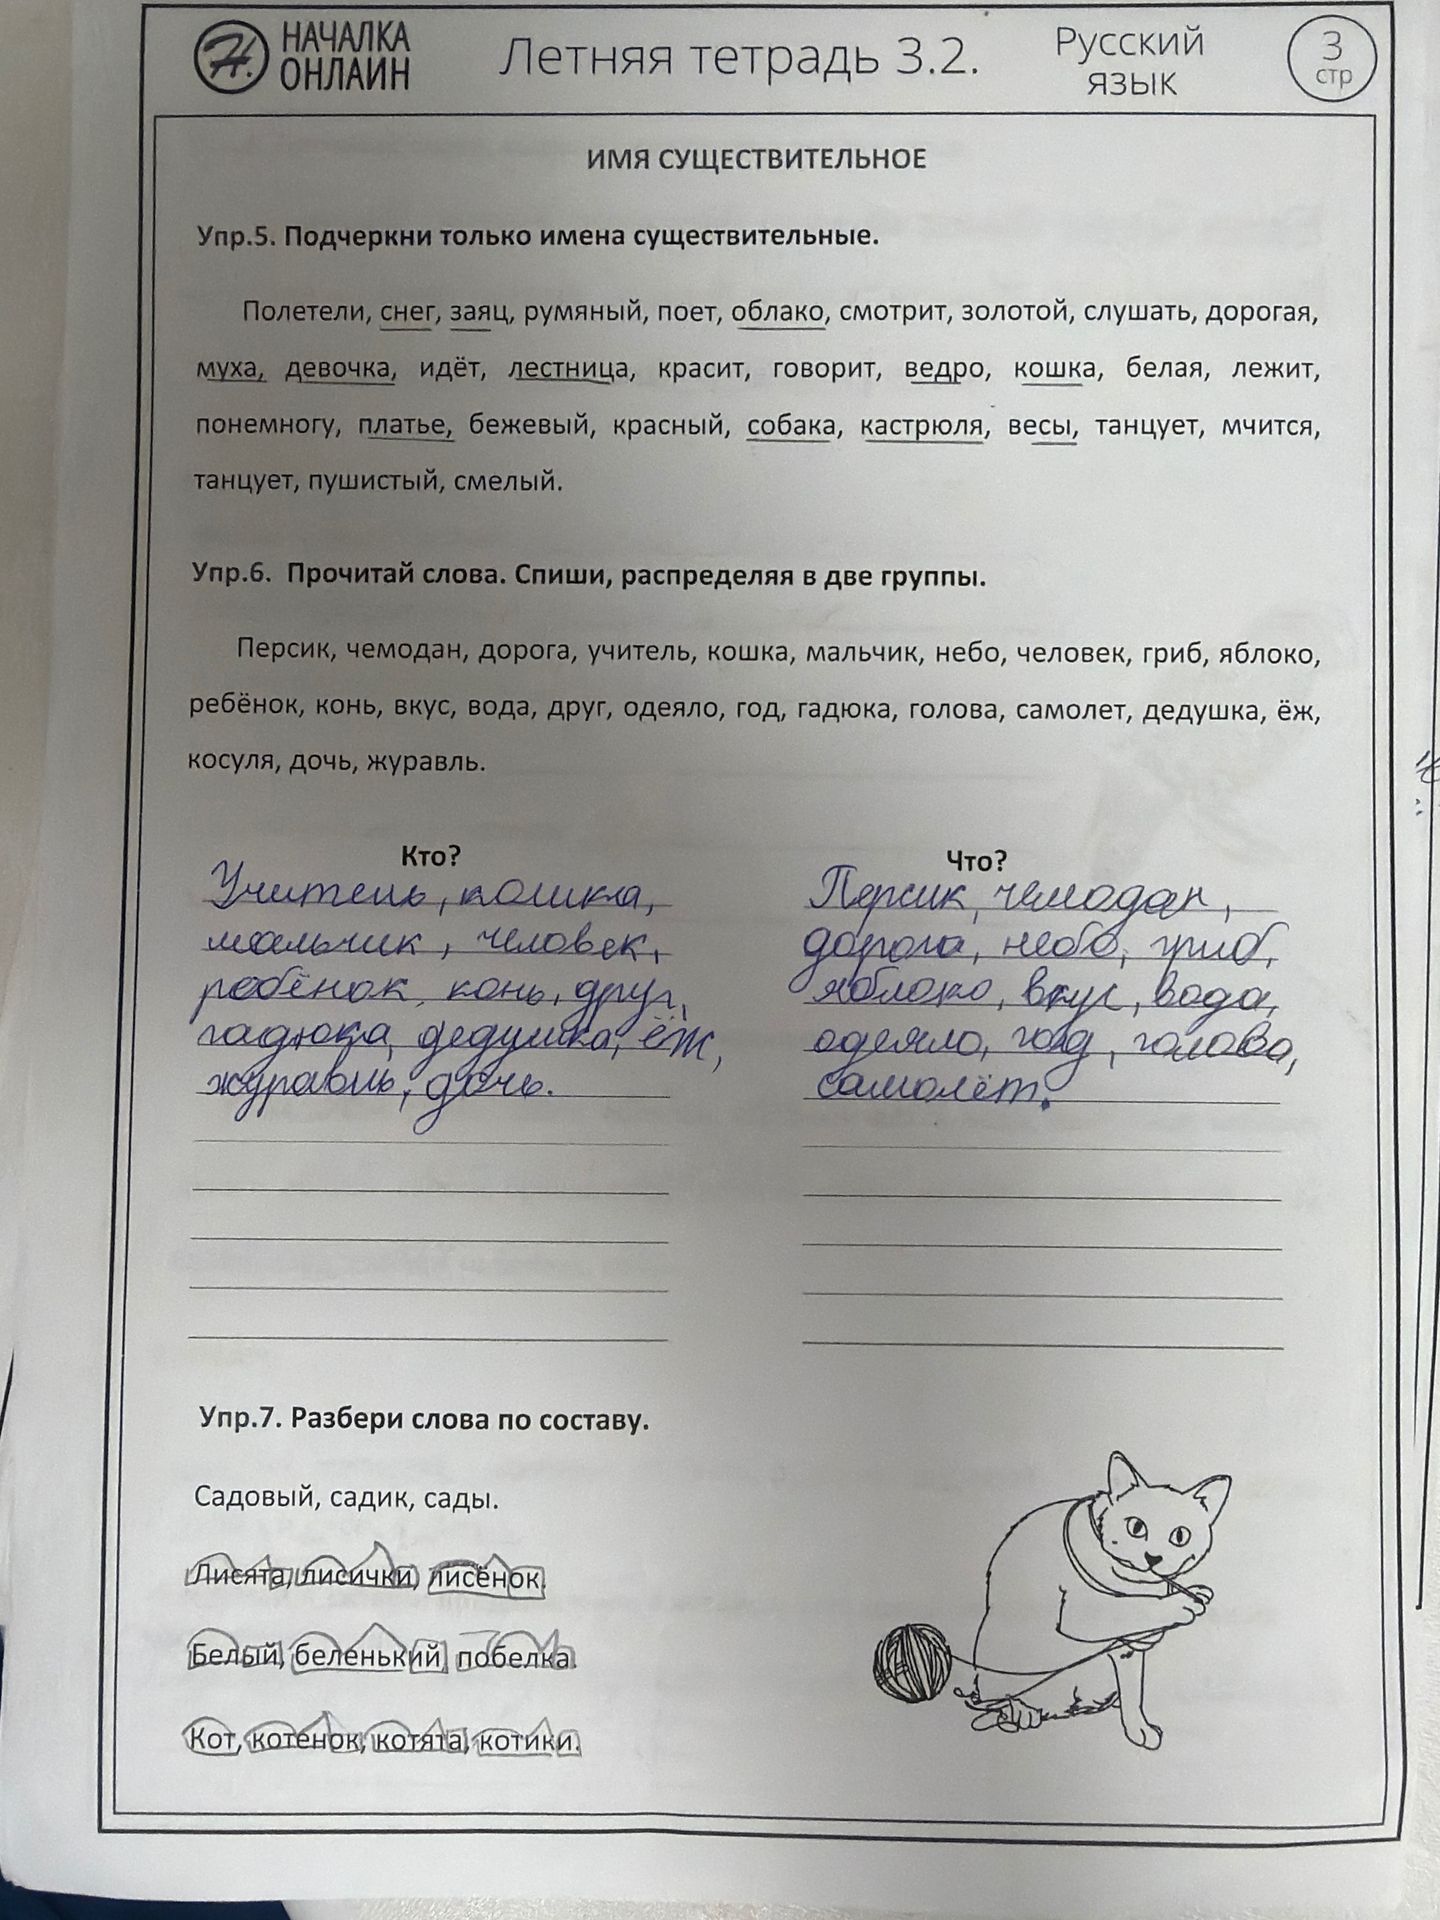 НАЧАЛКА
ОНЛАЙН
Летняя тетрадь 3.2.
Русский
язык
3
стр
ИМЯ СУЩЕСТВИТЕЛЬНОЕ
Упр.5. Подчеркни только имена существительные.
Полетели, снег, заяц, румяный, поет, облако, смотрит, золотой, слушать, дорогая,
муха, девочка, идёт, лестница, красит, говорит, ведро, кошка, белая, лежит,
понемногу, платье, бежевый, красный, собака, кастрюля, весы, танцует, мчится,
танцует, пушистый, смелый.
Упр.6. Прочитай слова. Спиши, распределяя в две группы.
Персик, чемодан, дорога, учитель, кошка, мальчик, небо, человек, гриб, яблоко,
ребёнок, конь, вкус, вода, друг, одеяло, год, гадюка, голова, самолет, дедушка, ёж,
косуля, дочь, журавль.
Кто?
Учитель, кошка,
мальчик, человек,
ребёнок, конь, друг,
гадюка, дедушка, ёж,
журавль, дочь.
Что?
Персик, чемодан,
дорога, небо, гриб,
яблоко, вкус, вода,
одеяло, год, голова,
самолёт.
Упр.7. Разбери слова по составу.
Садовый, садик, сады.
Лисята, лисички, лисёнок.
Белый, беленький, побелка.
Кот, котенок, котята, котики.